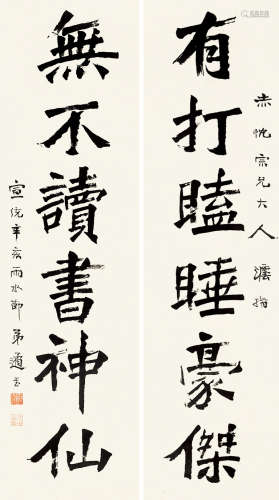 有打瞌睡豪傑
赤忱宗兄大人
無不讀書神仙
宣統辛亥雨水節
弟道